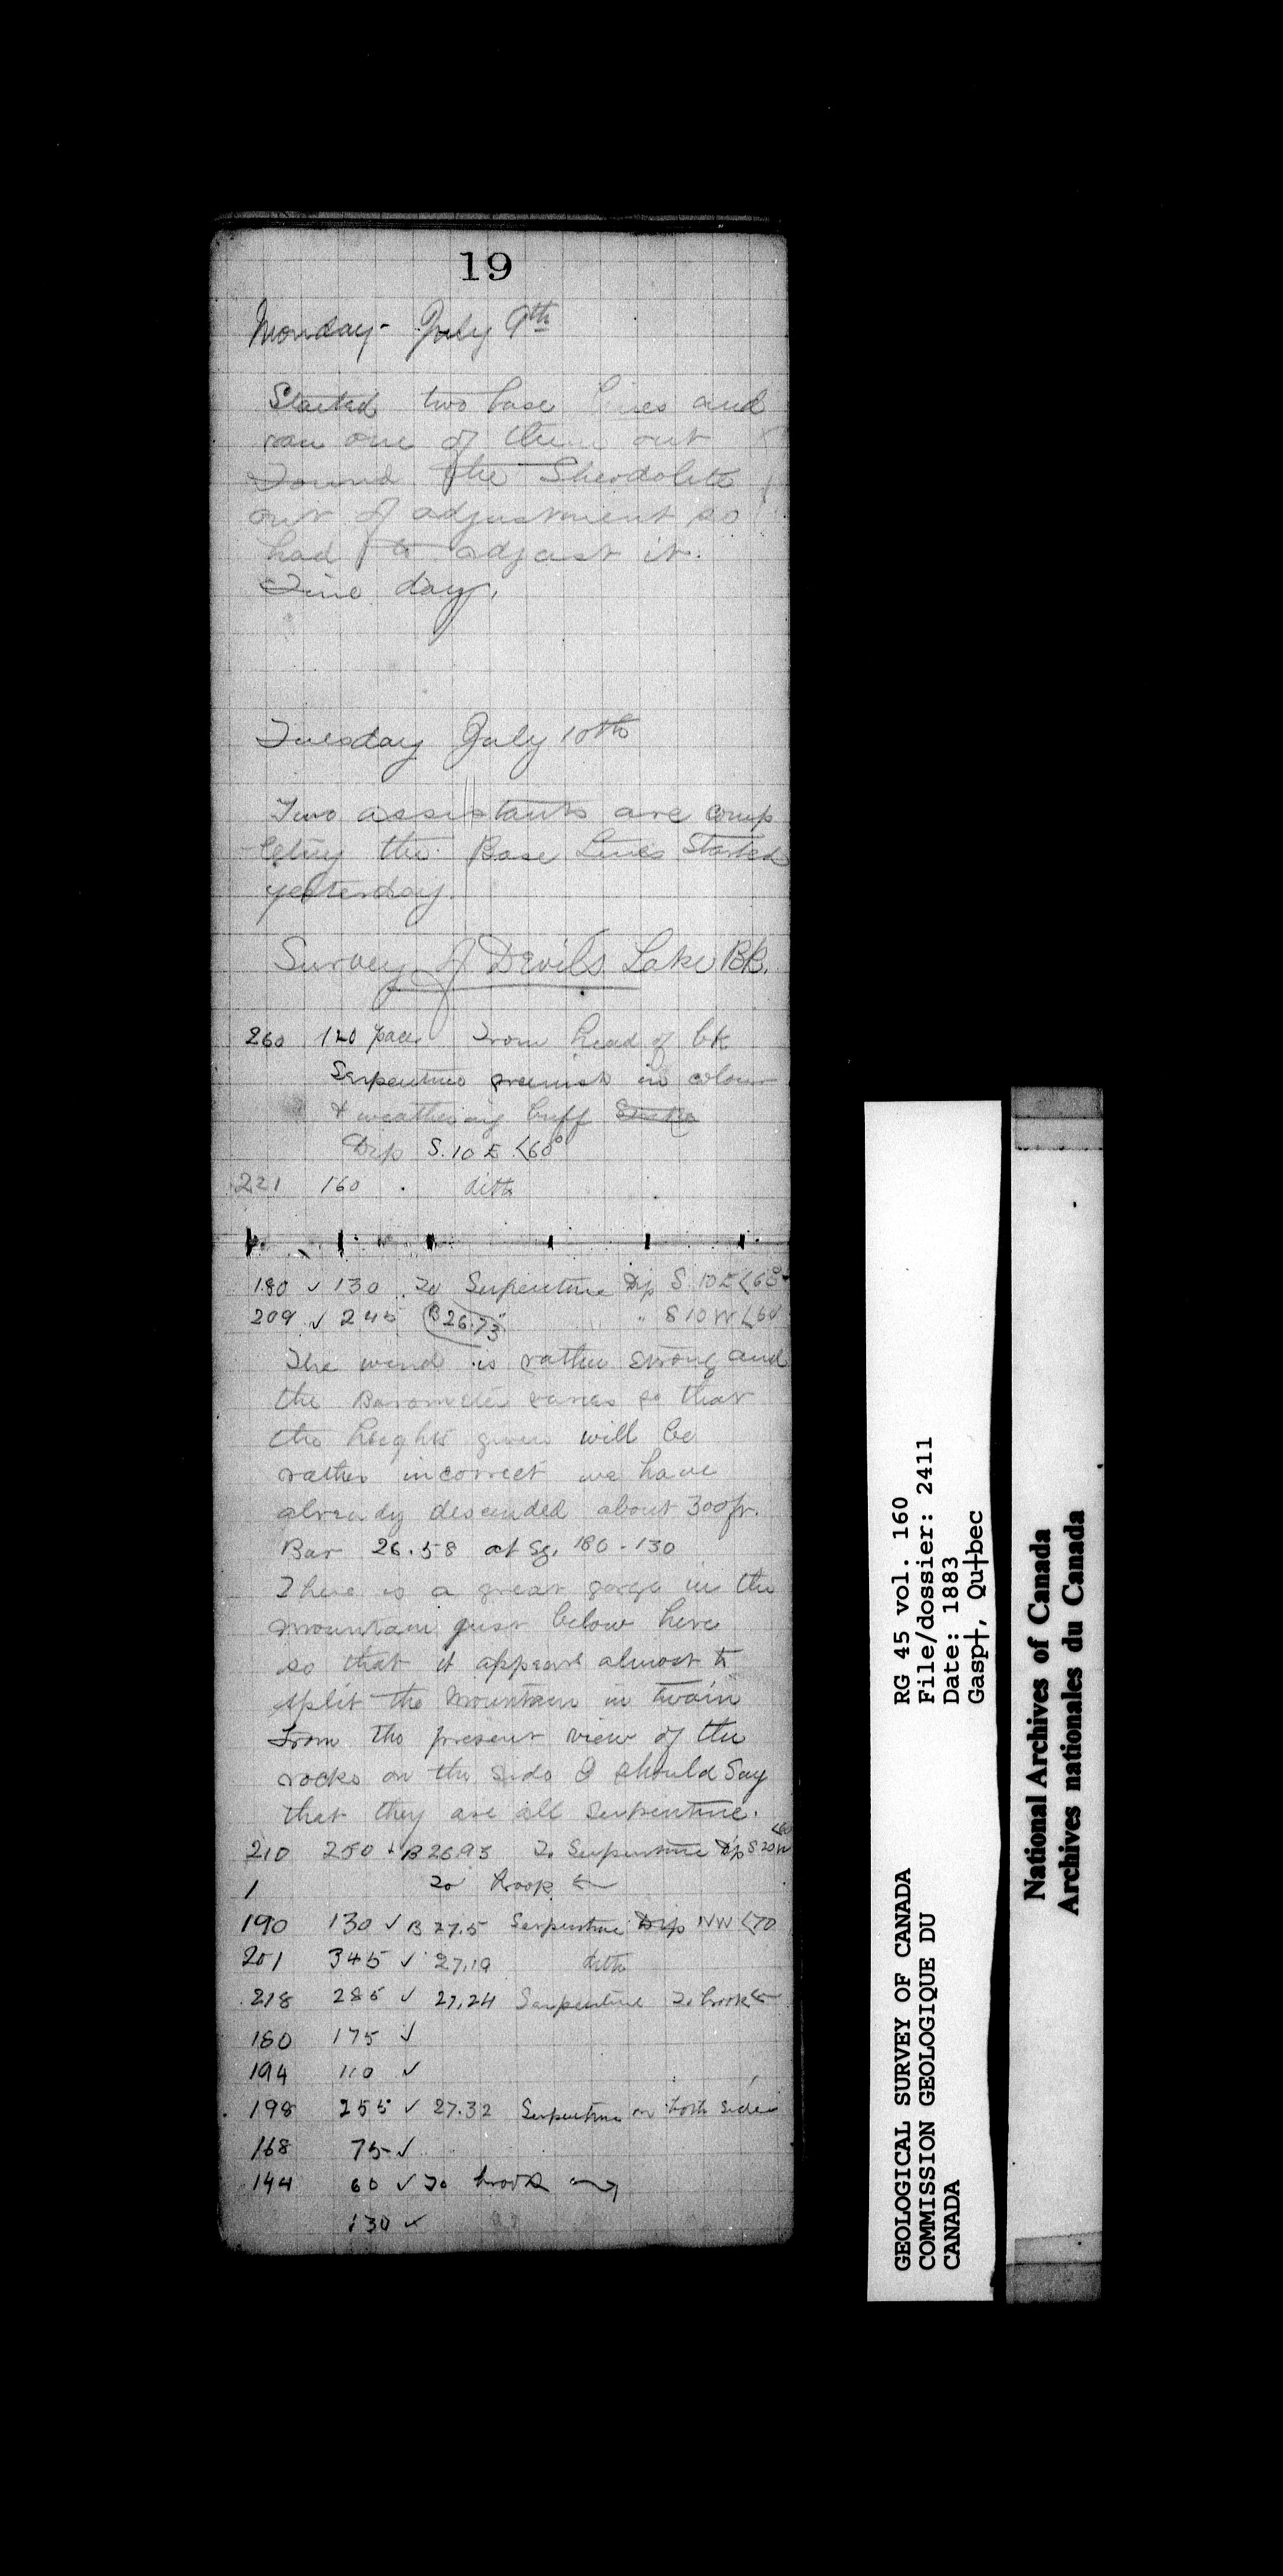 19
Monday - July 9th
Started two base lines and
ran one of them out
Found the Theodolite
out of adjustment so
had to adjust it.
Fine day.
Tuesday July 10th
Two assistants are comp
leting the Base Lines Started
yesterday.
Survey of Devils Lake BK.
260 120 paces From head of bk
Serpentine greenish in colour
& weathering buff
Dip S. 10 E <60°
221 160 ditto
180 ✓ 130 To Serpentine Dip S 10 E <60
209 ✓ 245 B 26.73 " S 10 W <60
The wind is rather strong and
the Barometer varies so that
the heights given will be
rather incorrect we have
already descended about 300 ft.
Bar 26.58 at Sg. 180 - 130
There is a great gorge in the
mountain just below here
so that it appears almost to
split the mountain in twain
From the present view of the
rocks on the side I should Say
that they are all Serpentine.
210 250 B 26.95 To Serpentine Dip S 20 W <60
1 To brook ←
190 130 ✓ B 27.5 Serpentine Dip NW <70
201 345 ✓ 27.19 ditto
218 285 ✓ 27.24 Serpentine To brook ←
160 175 ✓
194 110 ✓
198 255 ✓ 27.32 Serpentine on both sides
168 75 ✓
144 60 ✓ To brook →
130 ✓
GEOLOGICAL SURVEY OF CANADA
COMMISSION GEOLOGIQUE DU
CANADA
RG 45 vol. 160
File/dossier: 2411
Date: 1883
Gasp†, Qu†bec
National Archives of Canada
Archives nationales du Canada